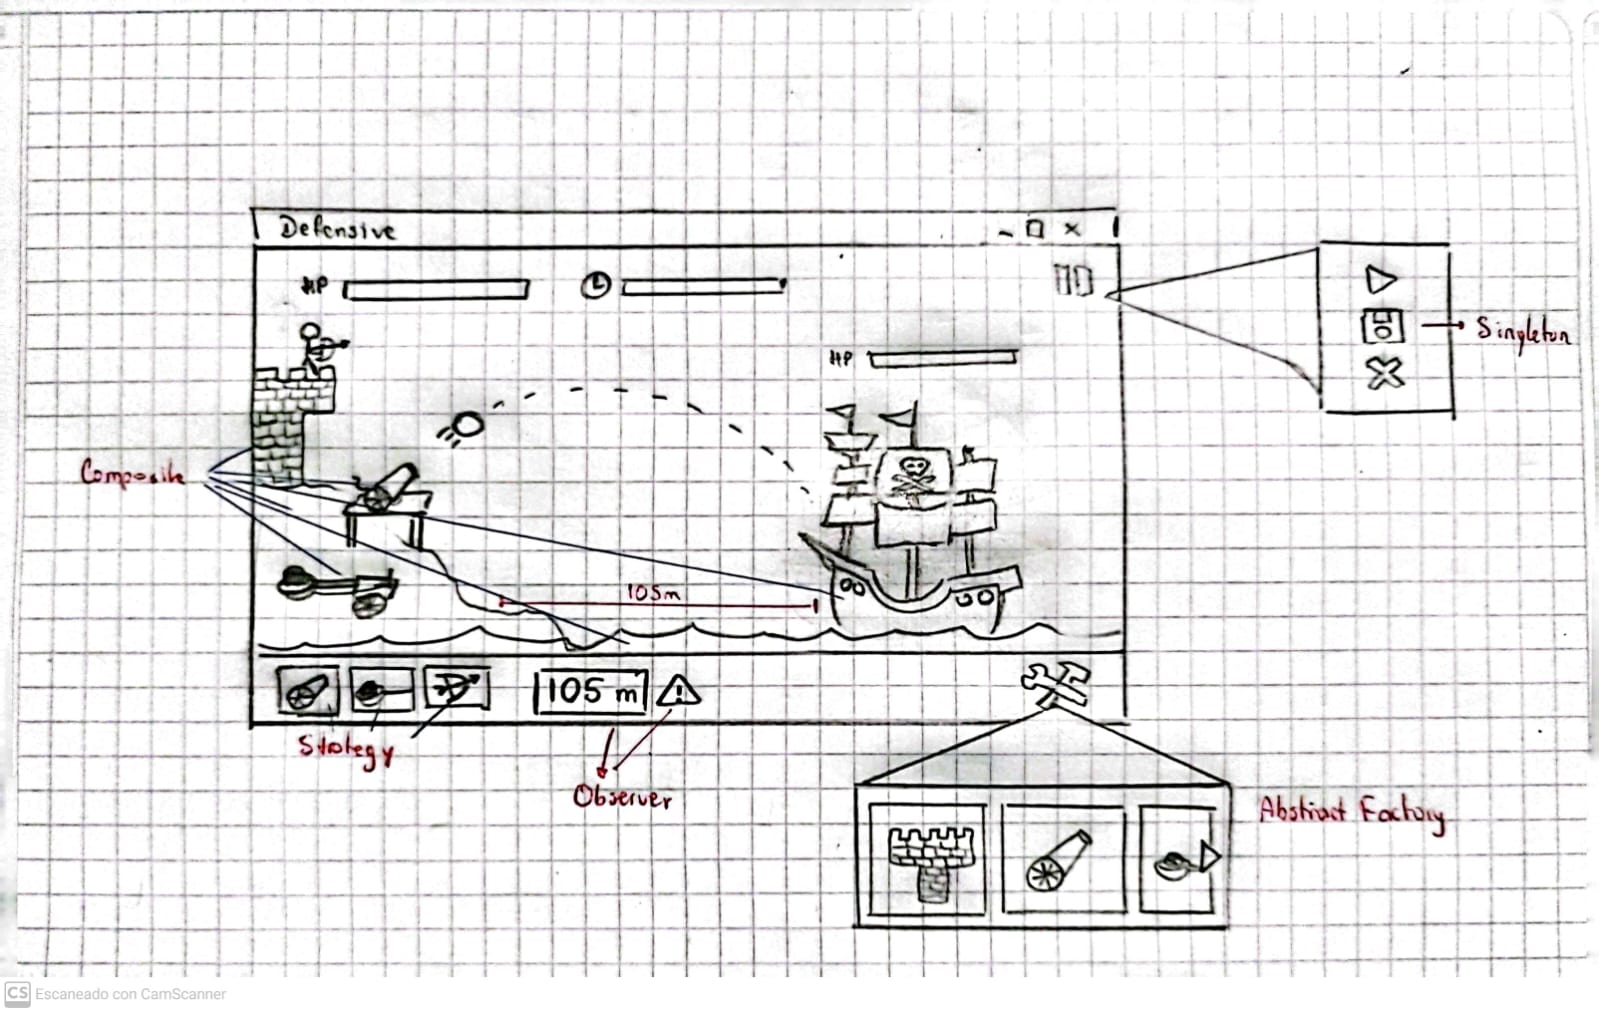 Defensive
HP
HP
Singleton
Composite
105m
105 m
Strategy
Observer
Abstract Factory
CS Escaneado con CamScanner